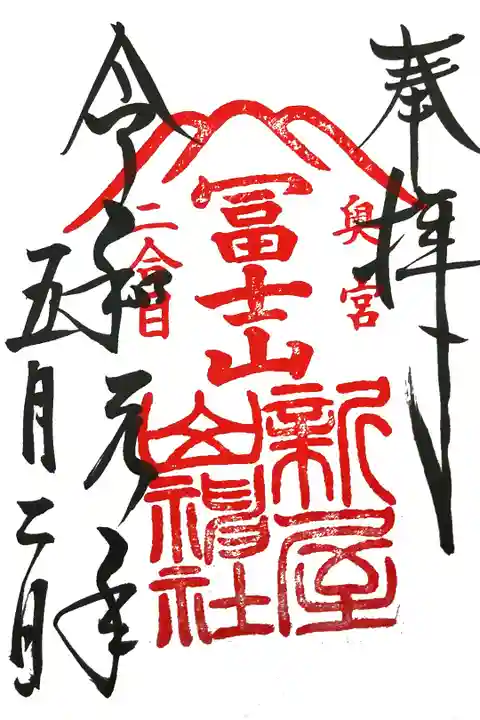 奉拝
奥宮
冨士山
二合目
新屋
山神社
令和元年
五月二日